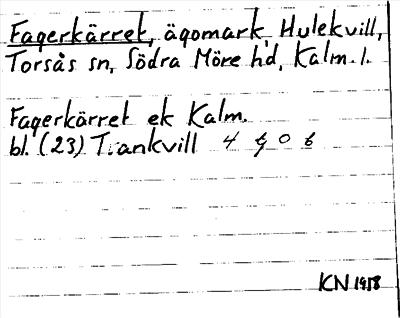 Fagerkärret, ägomark, Hulekvill,
Torsås sn, Södra Möre hd, Kalm. l.
Fagerkärret ek Kalm.
bl. (23) Trankvill 4 g 0 6
KN 1958